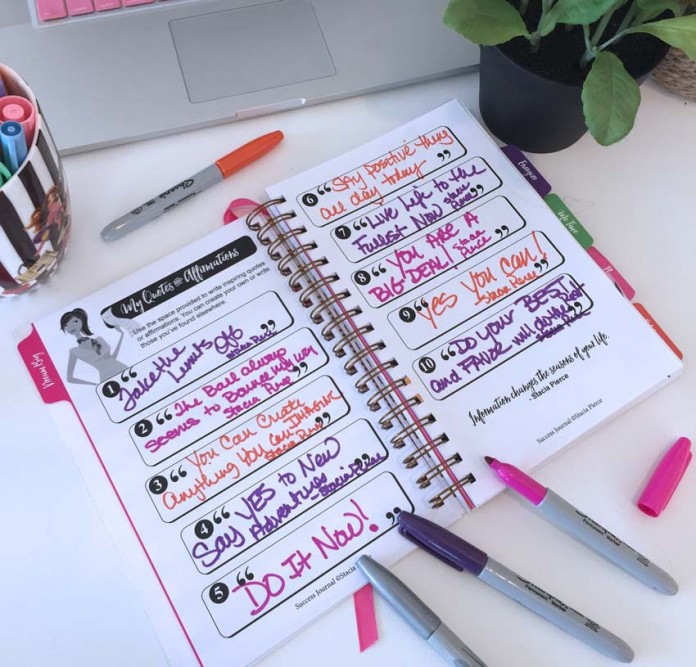 My Quotes and Affirmations
Use the space provided to write inspiring quotes
or affirmations. You can create your own or write
those you've found elsewhere.
1 “Take the
Limits Off”
Stacia Pierce
2 “The Ball always
Seems to Bounce my way”
Stacia Pierce
3 “You Can Create
anything You Can Imagine”
Stacia Pierce
4 “Say YES to New
Adventures”
-Stacia Pierce
5 “DO It NOW!”
Success Journal ©Stacia
6 “Say positive thing
all day today”
7 “Live Life to the
Fullest Now” Stacia
Pierce
8 “YOU ARE A
BIG DEAL!” Stacia
Pierce
9 “Yes YOU Can!”
Stacia Pierce
10 “Do your BEST!
and Favor will do the Rest”
Stacia Pierce
Information changes the seasons of your life.
- Stacia Pierce
Success Journal ©Stacia Pierce
Sharpie